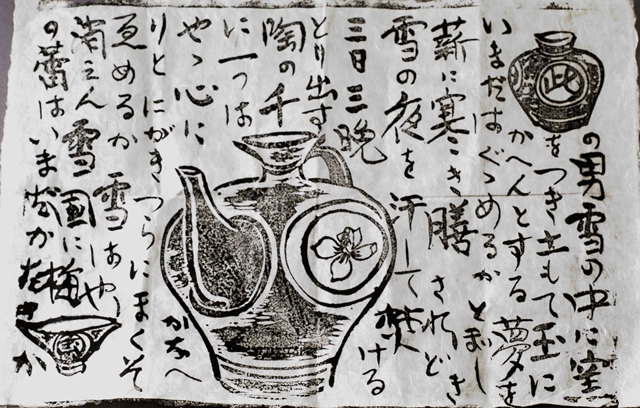 此の男雪の中に窯
をつき立もて玉に
かへんとする夢を
いまだはぐゝめるかとぼし
薪に寒き膳されどき
雪の夜を汗して焚ける
三日三晩
とり出す
陶の千
に一つは
やゝ心にかなへ
りとにがきつらにまくそ
ゑめるか雪はや
消えん雪国に梅
の蕾はいまだかたきか